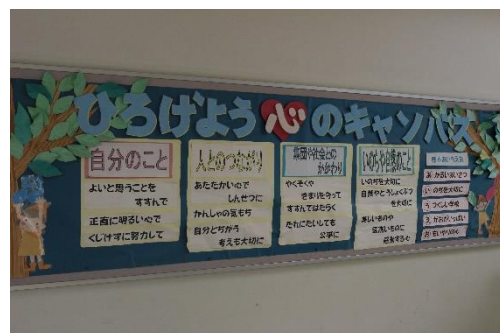 ひろげよう心のキャンバス
自分のこと
よいと思うことを
すすんで
正直に明るい心で
くじけずに努力して
人とのつながり
あたたかい心で
しんせつに
かんしゃの気もち
自分とちがう
考えも大切に
集団や社会との
かかわり
やくそくや
きまりを守って
すすんではたらく
だれにたいしても
公平に
いのちや自然のこと
いのちを大切に
自然やどうしょくぶつ
を大切に
美しいものや
気高いものに
感動する心
あ かるいあいさつ
い のちを大切に
う つくしい学校
え がおがいっぱい
お もいやりの心